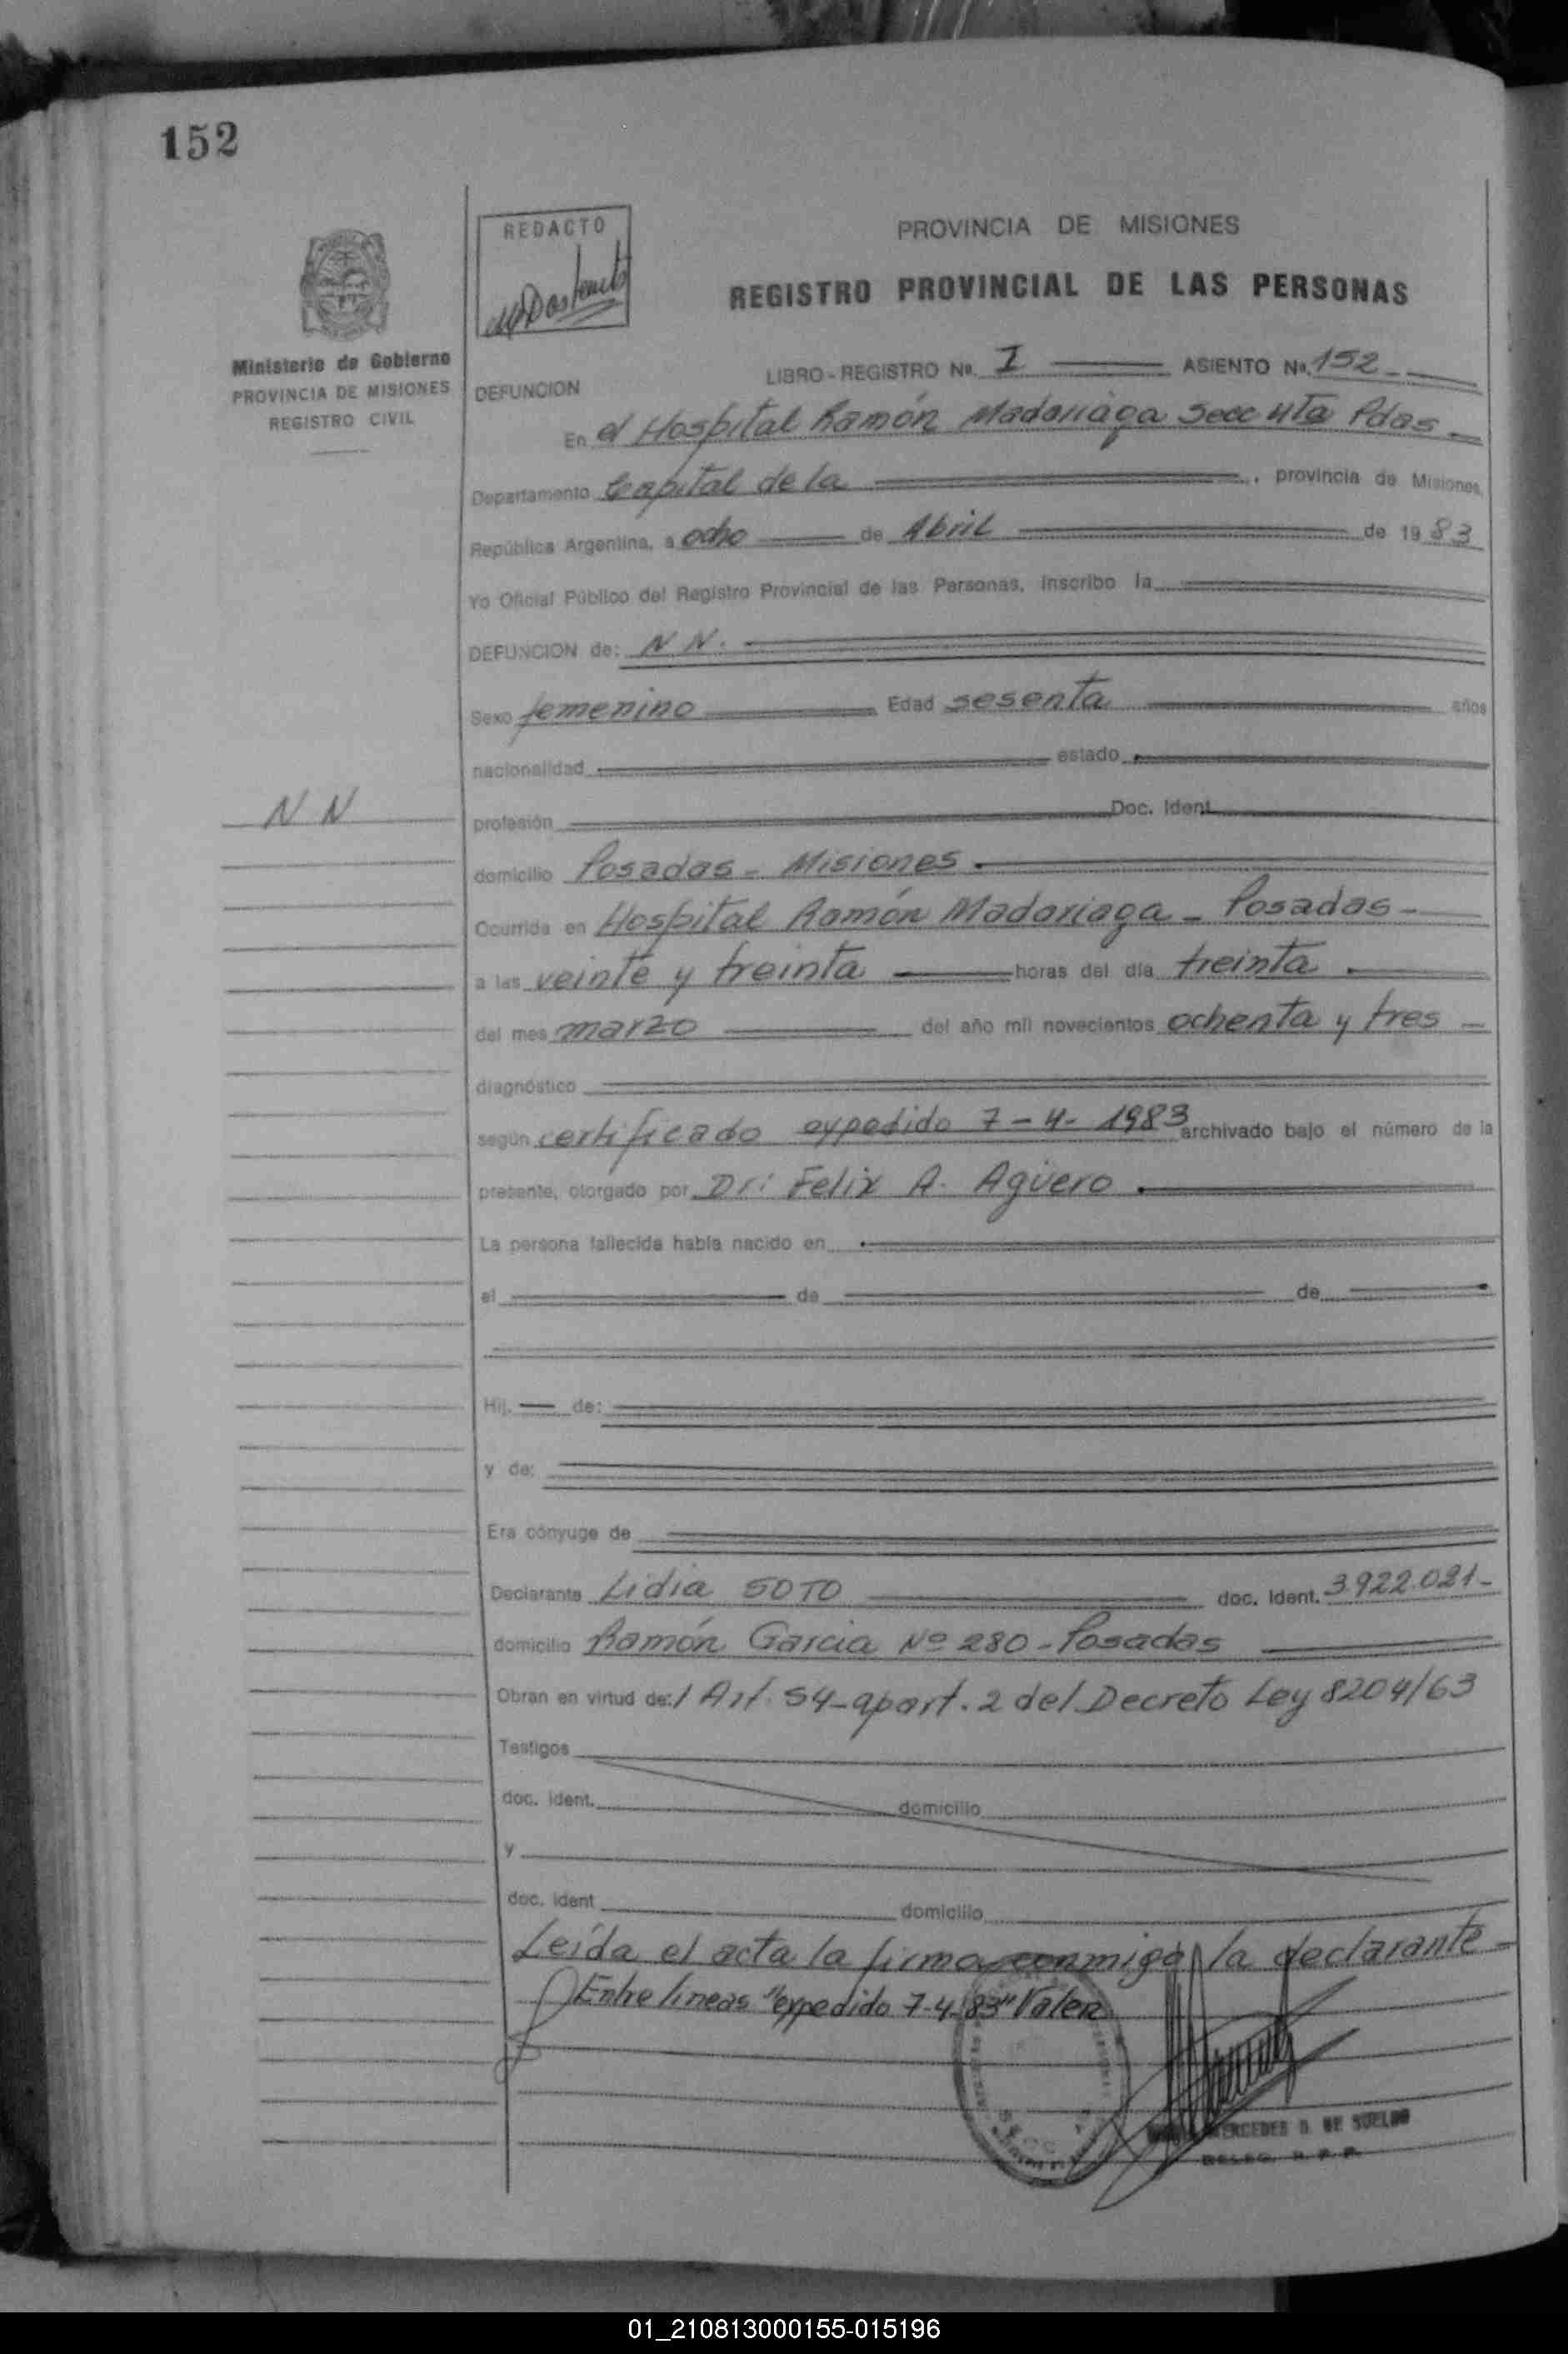 152
REDACTO
PROVINCIA DE MISIONES
REGISTRO PROVINCIAL DE LAS PERSONAS
Ministerio de Gobierno
PROVINCIA DE MISIONES
REGISTRO CIVIL
LIBRO - REGISTRO Nº. I ASIENTO Nº. 152
DEFUNCION
En el Hospital Ramón Madariaga Secc 4ta Pdas
Departamento Capital de la , provincia de Misiones,
República Argentina, a ocho de Abril de 1983
Yo Oficial Público del Registro Provincial de las Personas, inscribo la
DEFUNCION de: N N.
Sexo femenino Edad sesenta años
nacionalidad estado
N N
profesión Doc. Ident.
domicilio Posadas - Misiones.
Ocurrida en Hospital Ramón Madariaga - Posadas -
a las veinte y treinta horas del día treinta
del mes marzo del año mil novecientos ochenta y tres
diagnóstico
según certificado expedido 7-4-1983 archivado bajo el número de la
presente, otorgado por Dr: Felix A. Agüero
La persona fallecida había nacido en
el de de
Hij. de:
y de:
Era cónyuge de
Declarante Lidia SOTO doc. Ident. 3.922.021-
domicilio Ramón Garcia Nº 280 - Posadas
Obran en virtud de:l Art. 54-apart. 2 del Decreto Ley 8204/63
Testigos
doc. ident. domicilio
y
doc. ident domicilio
Leída el acta la firma conmigo la declarante -
Entre lineas "expedido 7-4-83" Valen
MERCEDES D. DE SUELDO
DELEG. R. P. P.
01_210813000155-015196